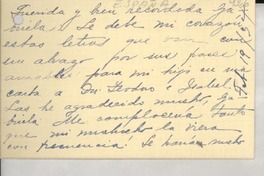 Querida y bien recordada Ga
briela: Le debe mi corazón
estas letras que van con
un abrazo por sus pase
amables para mi hijo en su
carta a Dn. Isidoro e Isabel.
Las he agradecido mucho, Ga
briela. Me complacería tanto
que mi muchacho la viera
con frecuencia! Le harían mucho